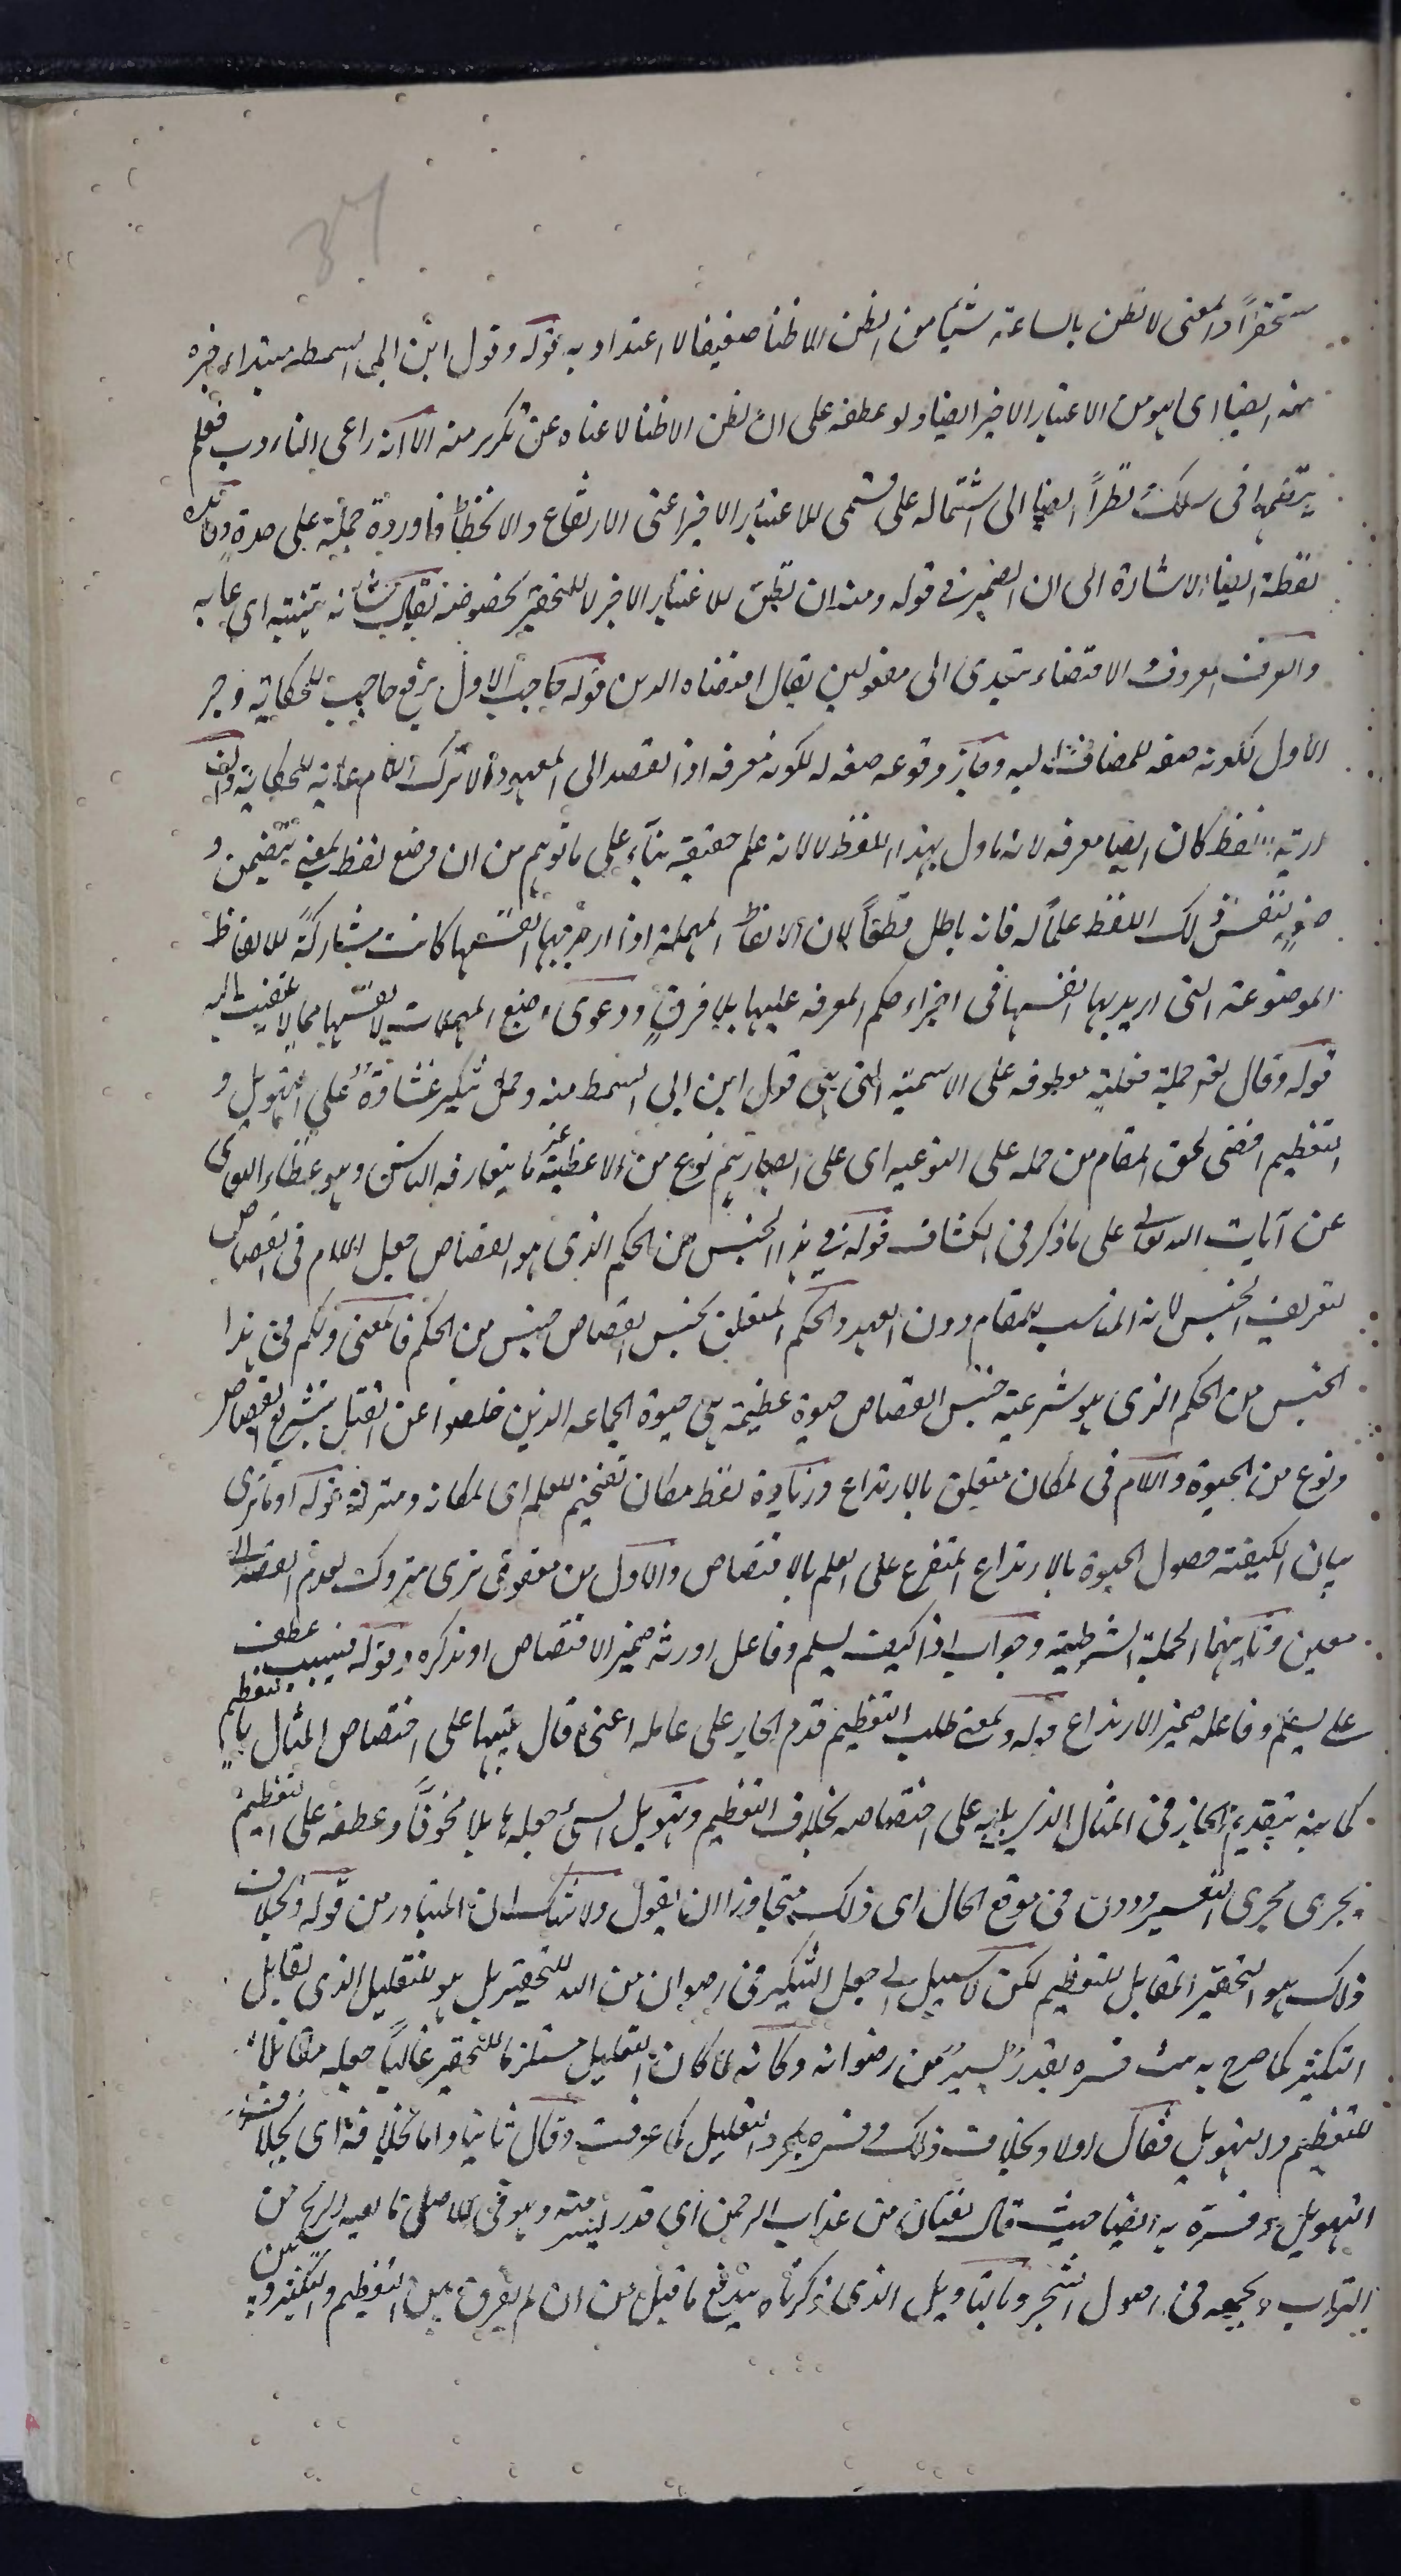 37
مستحقراً والمعنى لا نظن بالساعة شيئا من الظن الا ظنا ضعيفا لا اعتداد به قوله وقول ابن ابى السمط مبتداء خبره
منه ايضا اى هو من الاعتبار الاخير ايضا ولو عطفه على ان نظن الا ظنا لاغناه عن تكرير منه الا انه راعى التادب فلم
ينظمها فى سلك نظراً ايضا الى اشتماله على قسمى الاعتبار الاخير اعنى الارتفاع والانحطاط فاورده جملة على حدة وفائدة
لفظة ايضا الاشارة الى ان الضمير فى قوله ومنه ان نظن للاعتبار الاخير لا للتحقير بخصوصه يقال شانه يشينه اى عابه
والعرف المعروف الاقتضاء يتعدى الى مفعولين يقال اقتضاه الدين قوله حاجب الاول برفع حاجب للحكاية وجر
الاول لكونه صفة للمضاف اليه وجاز وقوعه صفة له لكونه معرفة اذ القصد الى المعهود الا ترك اللام رعاية للحكاية
اريد به لفظ كان ايضا معرفة لانه ماول بهذا اللفظ لا لانه علم حقيقة بناء على ما توهم من ان وضع لفظ لمعنى يتضمن و
ضعه لنفس ذلك اللفظ علماً له فانه باطل قطعاً لان الالفاظ المهملة اذا اريد بها انفسها كانت مشاركة للالفاظ
الموضوعة التى اريد بها انفسها فى اجراء حكم المعرفة عليها بلا فرق ودعوى وضع المهملات لانفسها مما لا يلتفت اليه
قوله وقال تع جملة فعلية معطوفة على الاسمية التى هى قول ابن ابى السمط منه وحمل تنكير غشاوة على التهويل و
التعظيم اقضى لحق المقام من حمله على النوعية اى على ابصارهم نوع من الاغطية غير ما يتعارفه الناس وهو غطاء التعامى
عن آيات الله تعالى على ما ذكر فى الكشاف قوله فى هذا الجنس من الحكم الذى هو القصاص جعل اللام فى القصاص
لتعريف الجنس لانه المناسب للمقام دون العهد والحكم المتعلق بجنس القصاص جنس من الحكم فالمعنى ولكم فى هذا
الجنس من الحكم الذى هو شرعية جنس القصاص حيوة عظيمة هى حيوة الجماعة الذين خلصوا عن القتل بتشريع القصاص
ونوع من الحيوة واللام فى لمكان متعلق بالارتداع وزيادة لفظ مكان تفخيم للعلم اى لمكانه ومنزلته قوله او ما ترى
بيان لكيفية حصول الحيوة بالارتداع المتفرع على العلم بالاقتصاص والاول من مفعولى ترى متروك لعدم القصد الى
معين وثانيهما الجملة الشرطية وجواب اذا كيف يسلم وفاعل اورثه ضمير الاقتصاص او تذكره وقوله فيسبب عطف
على يسلم وفاعله ضمير الارتداع قوله ولمعنى طلب التعظيم قدم الجار على عامله اعنى قال تنبيها على اختصاص المثال بالتعظيم
كما نبه بتقديم الجار فى المثال الذى يليه على اختصاصه بخلاف التعظيم وتهويل الشئ جعله هائلا مخوفاً وعطفه على التعظيم
يجرى مجرى التفسير ودون فى موقع الحال اى ذلك متجاوزا ان يقول ولا شك ان المتبادر من قوله وبخلاف
ذلك هو التحقير المقابل للتعظيم لكن لا سبيل الى جعل التنكير فى رضوان من الله للتحقير بل هو للتقليل الذى يقابل
التكثير كما صرح به حيث فسره بقدر يسير من رضوانه وكانه لما كان التقليل مستلزما للتحقير غالباً جعله مقابلا
للتعظيم والتهويل فقال اولا وبخلاف ذلك وفسره بمجرد التقليل كما عرفت وقال ثانيا واما بخلافه اى بخلاف
التهويل وفسره به ايضا حيث قال نفيان من عذاب الرحمن اى قدر يسير منه وهو فى الاصل ما نفيه الريح من
التراب ويجمعه فى اصول الشجر وبالتاويل الذى ذكرناه يندفع ما قيل من ان لم يفرق بين التعظيم والتكثير و بين